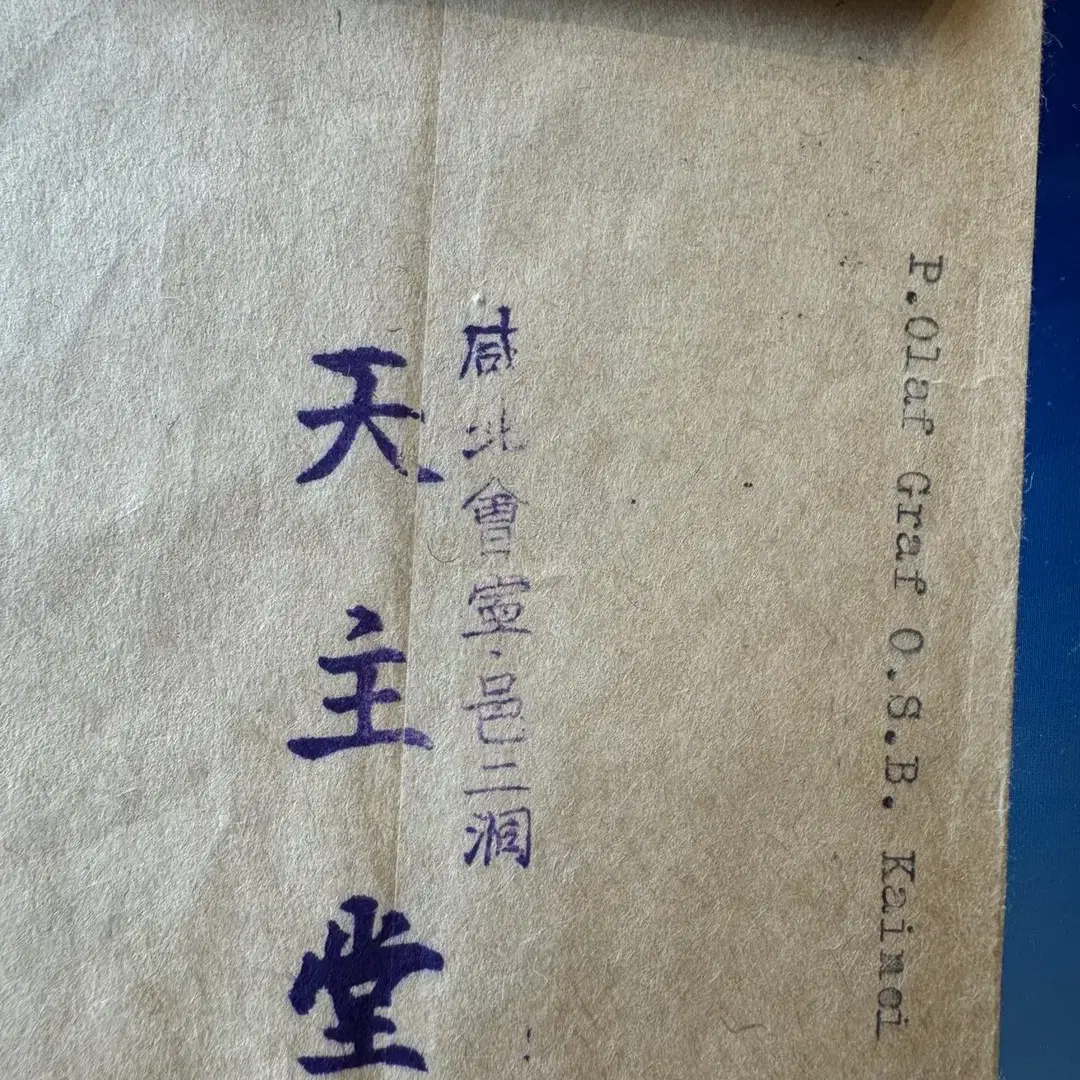 P.Olaf Graf O.S.B. Kainei
咸北會寧邑三洞
天主堂